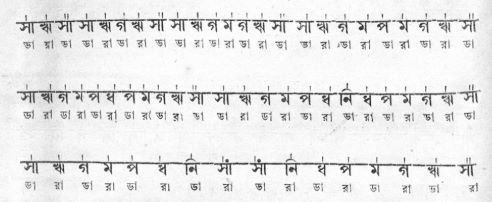 সা ঋা সা সা ঋা গ ঋা সা সা ঋা গ ম গ ঋা সা সা ঋা গ ম প ম গ ঋা সা
ডা রা ডা ডা রা ডা রা ডা ডা রা ডা রা ডা রা ডা ডা রা ডা রা ডা রা ডা রা ডা
সা ঋা গ ম প ধ প ম গ ঋা সা সা ঋা গ ম প ধ নি ধ প ম গ ঋা সা
ডা রা ডা রা ডা রা ডা রা ডা রা ডা ডা রা ডা রা ডা রা ডা রা ডা রা ডা রা ডা
সা ঋা গ ম প ধ নি সাঁ সাঁ নি ধ প ম গ ঋা সা
ডা রা ডা রা ডা রা ডা রা ডা রা ডা রা ডা রা ডা রা